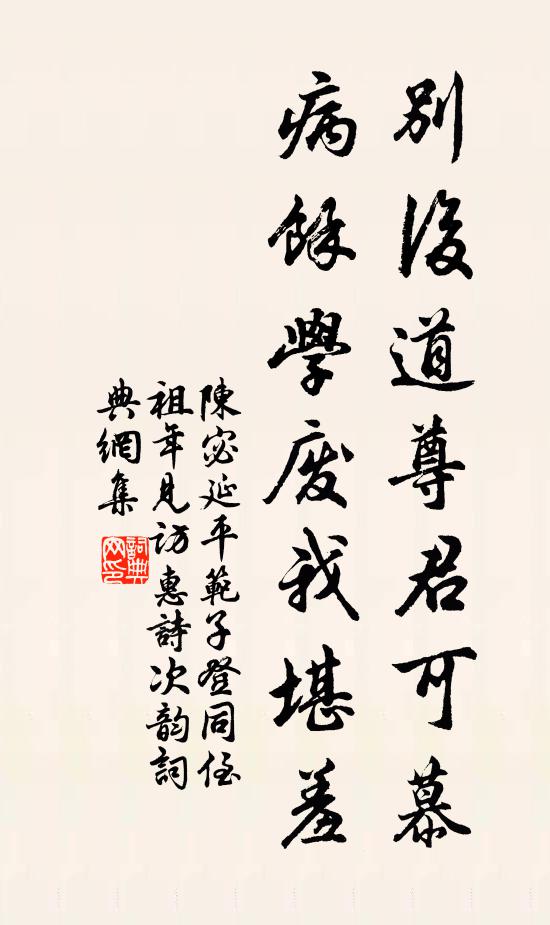 別後道尊君可慕
病餘學廢我堪羞
陳宓延平範子登同侄
祖年見訪惠詩次韵詞
典網集
詞典網印